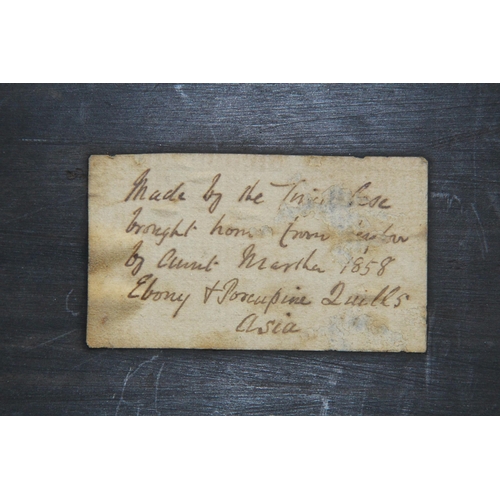 Made by the
brought home from
by Aunt Martha 1858
Ebony & Porcupine Quills
Asia